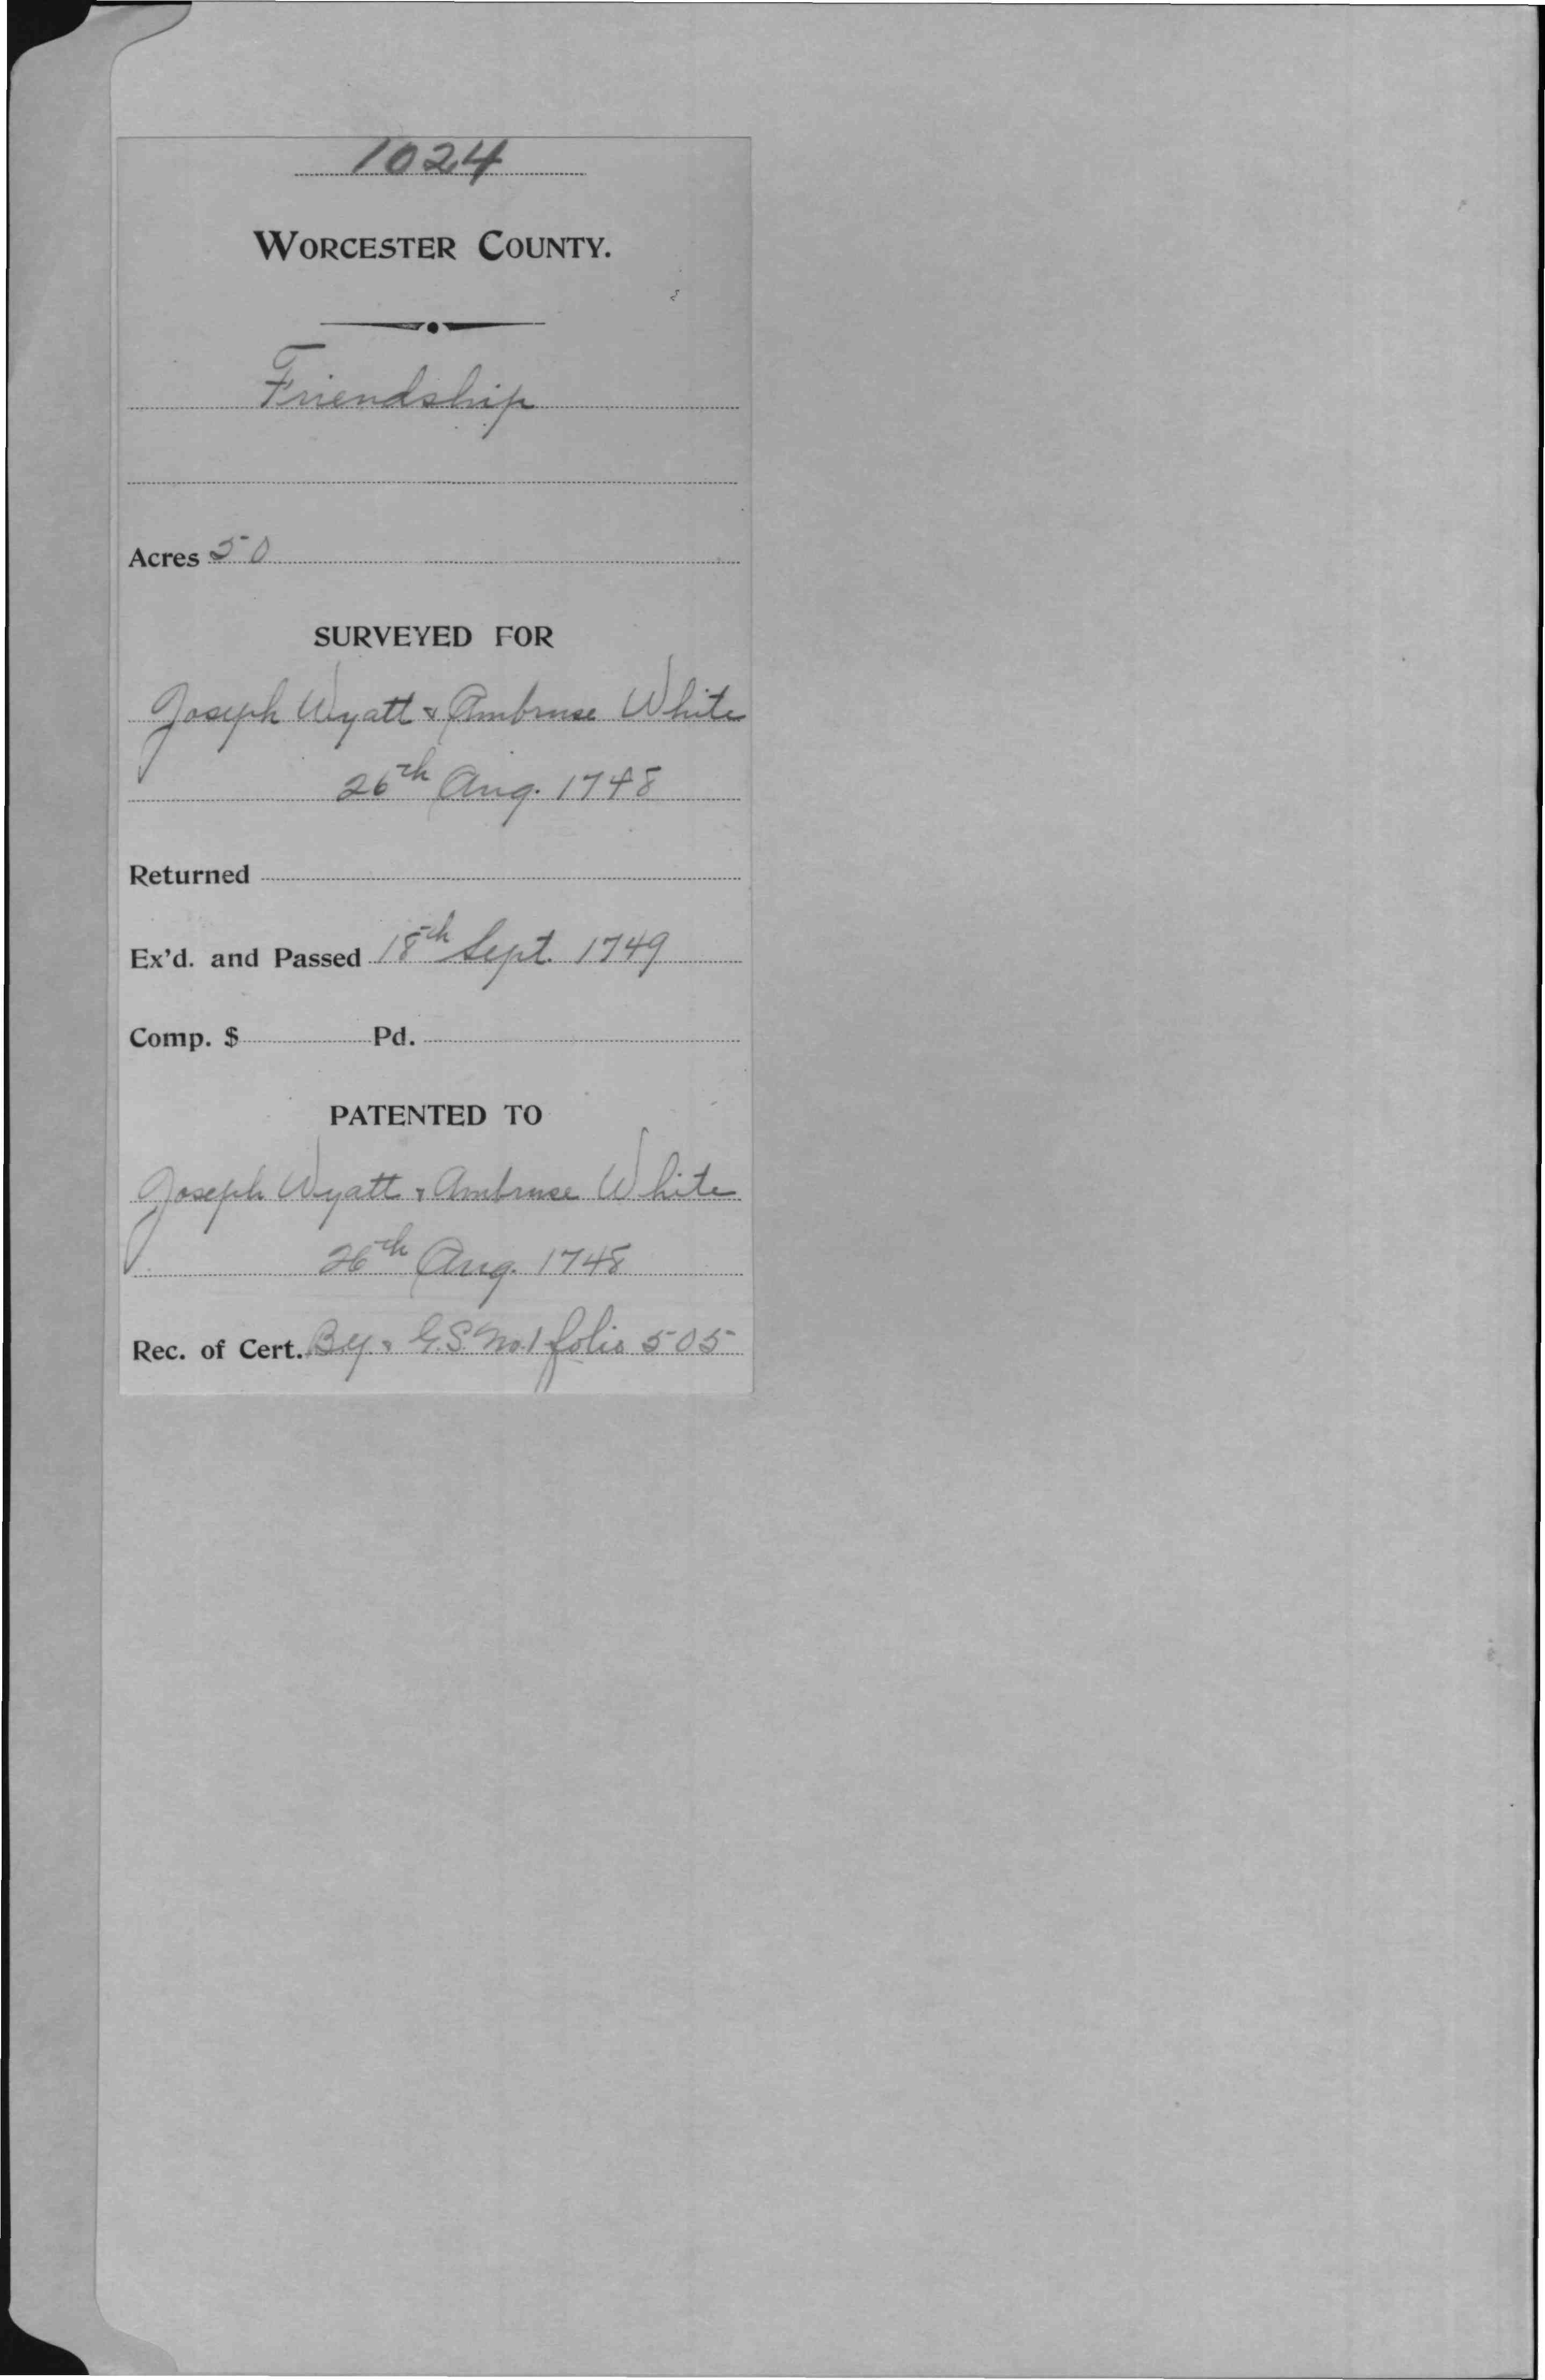 1024
WORCESTER COUNTY.
Friendship
Acres 50
SURVEYED FOR
Joseph Wyatt & Ambrose White
26th Aug. 1748
Returned
Ex'd. and Passed 18th Sept. 1749
Comp. $ Pd.
PATENTED TO
Joseph Wyatt & Ambrose White
26th Aug. 1748
Rec. of Cert. B.y. & G.S. No. 1 folio 505